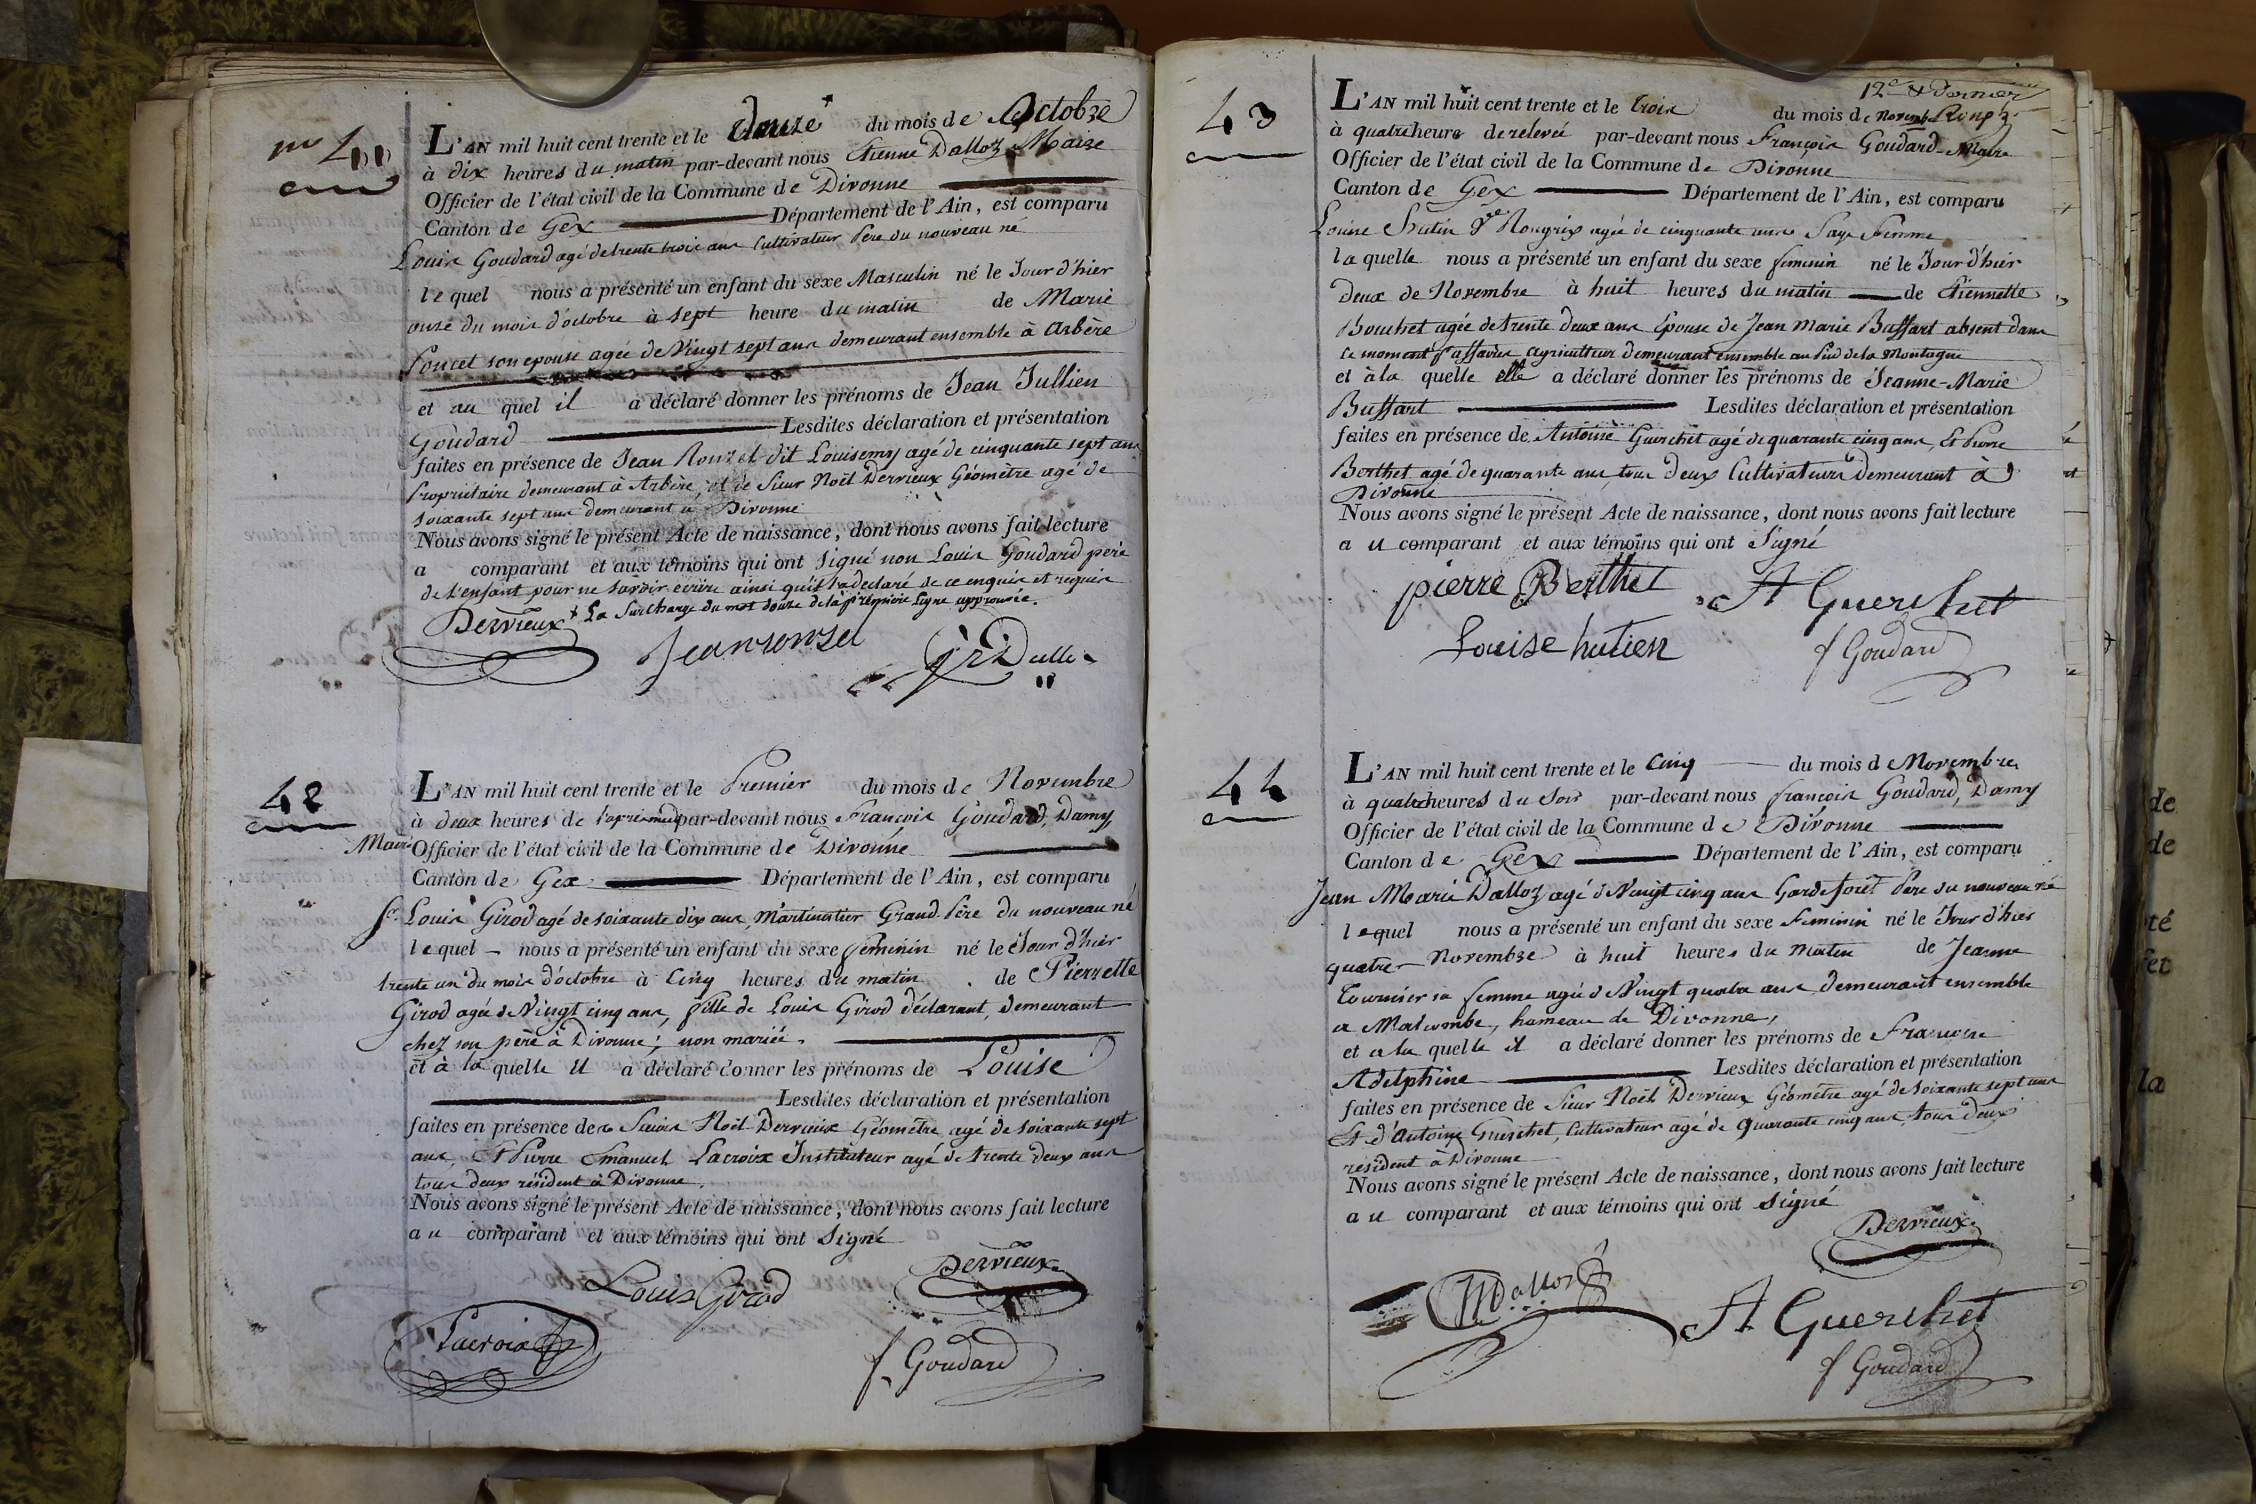 L'AN mil huit cent trente et le douze + du mois de Octobre
à dix heures du matin par-devant nous Etienne Dalloz Maire
Officier de l'état civil de la Commune de Divonne
Canton de Gex Département de l'Ain, est comparu
Louis Goudard agé de trente trois ans Cultivateur Pere du nouveau né
lequel nous a présenté un enfant du sexe Masculin né le Jour d'hier
onze du mois d'octobre à sept heure du matin de Marie
Poncet son epouse agée de Vingt sept ans demeurant ensemble à Arbère
et au quel il a déclaré donner les prénoms de Jean Jullien
Goudard Lesdites déclaration et présentation
faites en présence de Jean Rouzel dit Louisemy agé de cinquante sept ans
Propriétaire demeurant à Arbère, et de Sieur Noël Dervieux Géomètre agé de
soixante sept ans demeurant à Divonne
Nous avons signé le présent Acte de naissance, dont nous avons fait lecture
a comparant et aux témoins qui ont signé non Louis Goudard père
de l'enfant pour ne savoir ecrire ainsi qu'il l'a declaré de ce enquis et requis
+ La Surcharge du mot douze de la première Ligne approuvée.
Dervieux
Jean ronzel
42
L'AN mil huit cent trente et le Premier du mois de Novembre
à deux heures de l'après midi par-devant nous François Goudard, Damy
Maire Officier de l'état civil de la Commune de Divonne
Canton de Gex Département de l'Ain, est comparu
Sr. Louis Girod agé de soixante dix ans, Martinatier Grand Père du nouveau né
lequel nous a présenté un enfant du sexe féminin né le Jour d'hier
trente un du mois d'octobre à Cinq heures du matin de Pierrette
Girod agée de Vingt cinq ans, fille de Louis Girod déclarant, demeurant
chez son père à Divonne; non mariée.
et à la quelle il a déclaré donner les prénoms de Louise
Lesdites déclaration et présentation
faites en présence de Noël Dervieux Géomètre agé de soixante sept
ans, Et Pierre Emanuel Lacroix Instituteur agé de trente deux ans
tous deux résident à Divonne.
Nous avons signé le présent Acte de naissance, dont nous avons fait lecture
au comparant et aux témoins qui ont signé
Dervieux
Louis Girod
Lacroix
f. Goudard
12e & dernier
43
L'AN mil huit cent trente et le trois du mois de Novemb
à quatre heure de relevée par-devant nous François Goudard Maire
Officier de l'état civil de la Commune de Divonne
Canton de Gex Département de l'Ain, est comparu
Louise Hutin agée de cinquante ans Sage Femme
la quelle nous a présenté un enfant du sexe feminin né le Jour d'hier
deux de Novembre à huit heures du matin de Etiennette
Bouchet agée de trente deux ans Epouse de Jean Marie Buffart absent dans
ce moment p. affaires agriculteur demeurant ensemble au Pied de la Montagne
et à la quelle elle a déclaré donner les prénoms de Jeanne-Marie
Buffart Lesdites déclaration et présentation
faites en présence de Antoine Guerchet agé de quarante cinq ans, Et Pierre
Berthet agé de quarante ans, tous deux Cultivateurs demeurant à
Divonne
Nous avons signé le présent Acte de naissance, dont nous avons fait lecture
au comparant et aux témoins qui ont Signé
pierre Berthet A Guerchet
Louise hutien f Goudard
44
L'AN mil huit cent trente et le Cinq du mois de Novembre
à quatre heures du Soir par-devant nous françois Goudard, Damy
Officier de l'état civil de la Commune de Divonne
Canton de Gex Département de l'Ain, est comparu
Jean Marie Dalloz agé de Vingt cinq ans Garde forêt Père du nouveau né
lequel nous a présenté un enfant du sexe Feminin né le Jour d'hier
quatre Novembre à huit heures du matin de Jeanne
Tournier sa femme agée de Vingt quatre ans demeurant ensemble
a Malcombe, hameau de Divonne,
et a la quelle il a déclaré donner les prénoms de Françoise
Adelphine Lesdites déclaration et présentation
faites en présence de Sieur Noël Dervieux Géomètre agé de soixante sept ans
Et d'Antoine Guerchet, Cultivateur agé de quarante cinq ans, tous deux
résident à Divonne
Nous avons signé le présent Acte de naissance, dont nous avons fait lecture
au comparant et aux témoins qui ont signé
Dervieux
A Guerchet
f Goudard